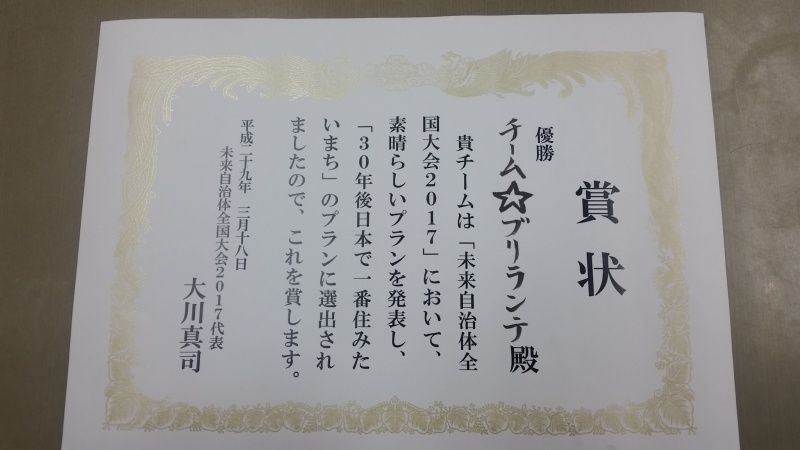 賞状
優勝
チーム☆ブリランテ殿
貴チームは「未来自治体全
国大会2017」において、
素晴らしいプランを発表し、
「30年後日本で一番住みた
いまち」のプランに選出され
ましたので、これを賞します。
平成二十九年 三月十八日
未来自治体全国大会2017代表
大川真司